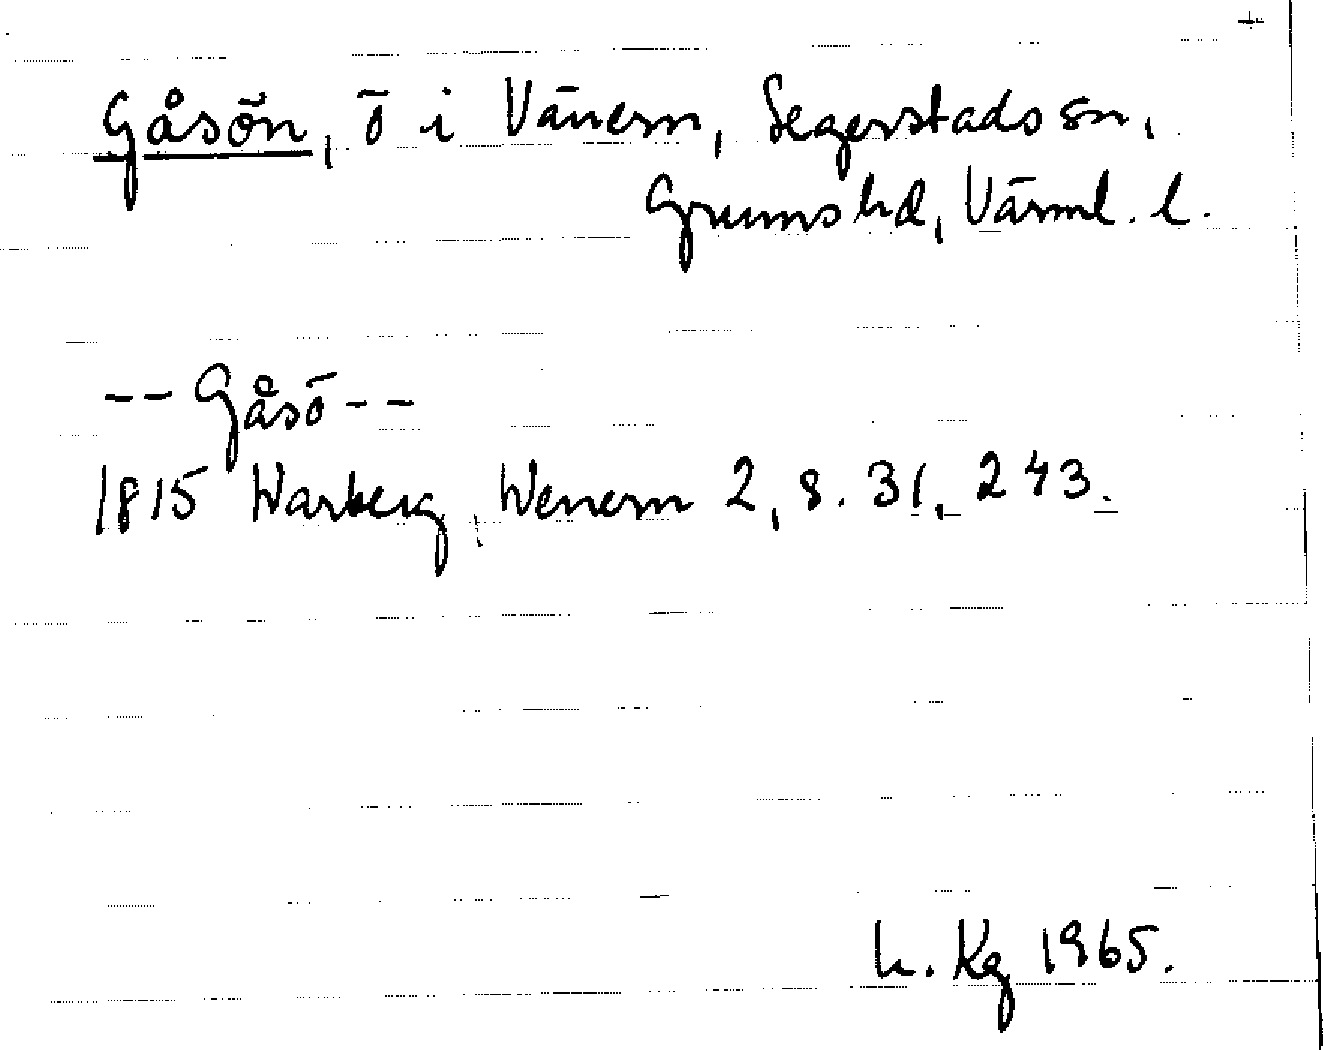 Gåsön, ö i Vänern, Segerstads sn,
Grums hd, Värml. l.
-- Gåsö --
1815 Warberg, Wenern 2, s. 31, 243.
L. Kg 1965.